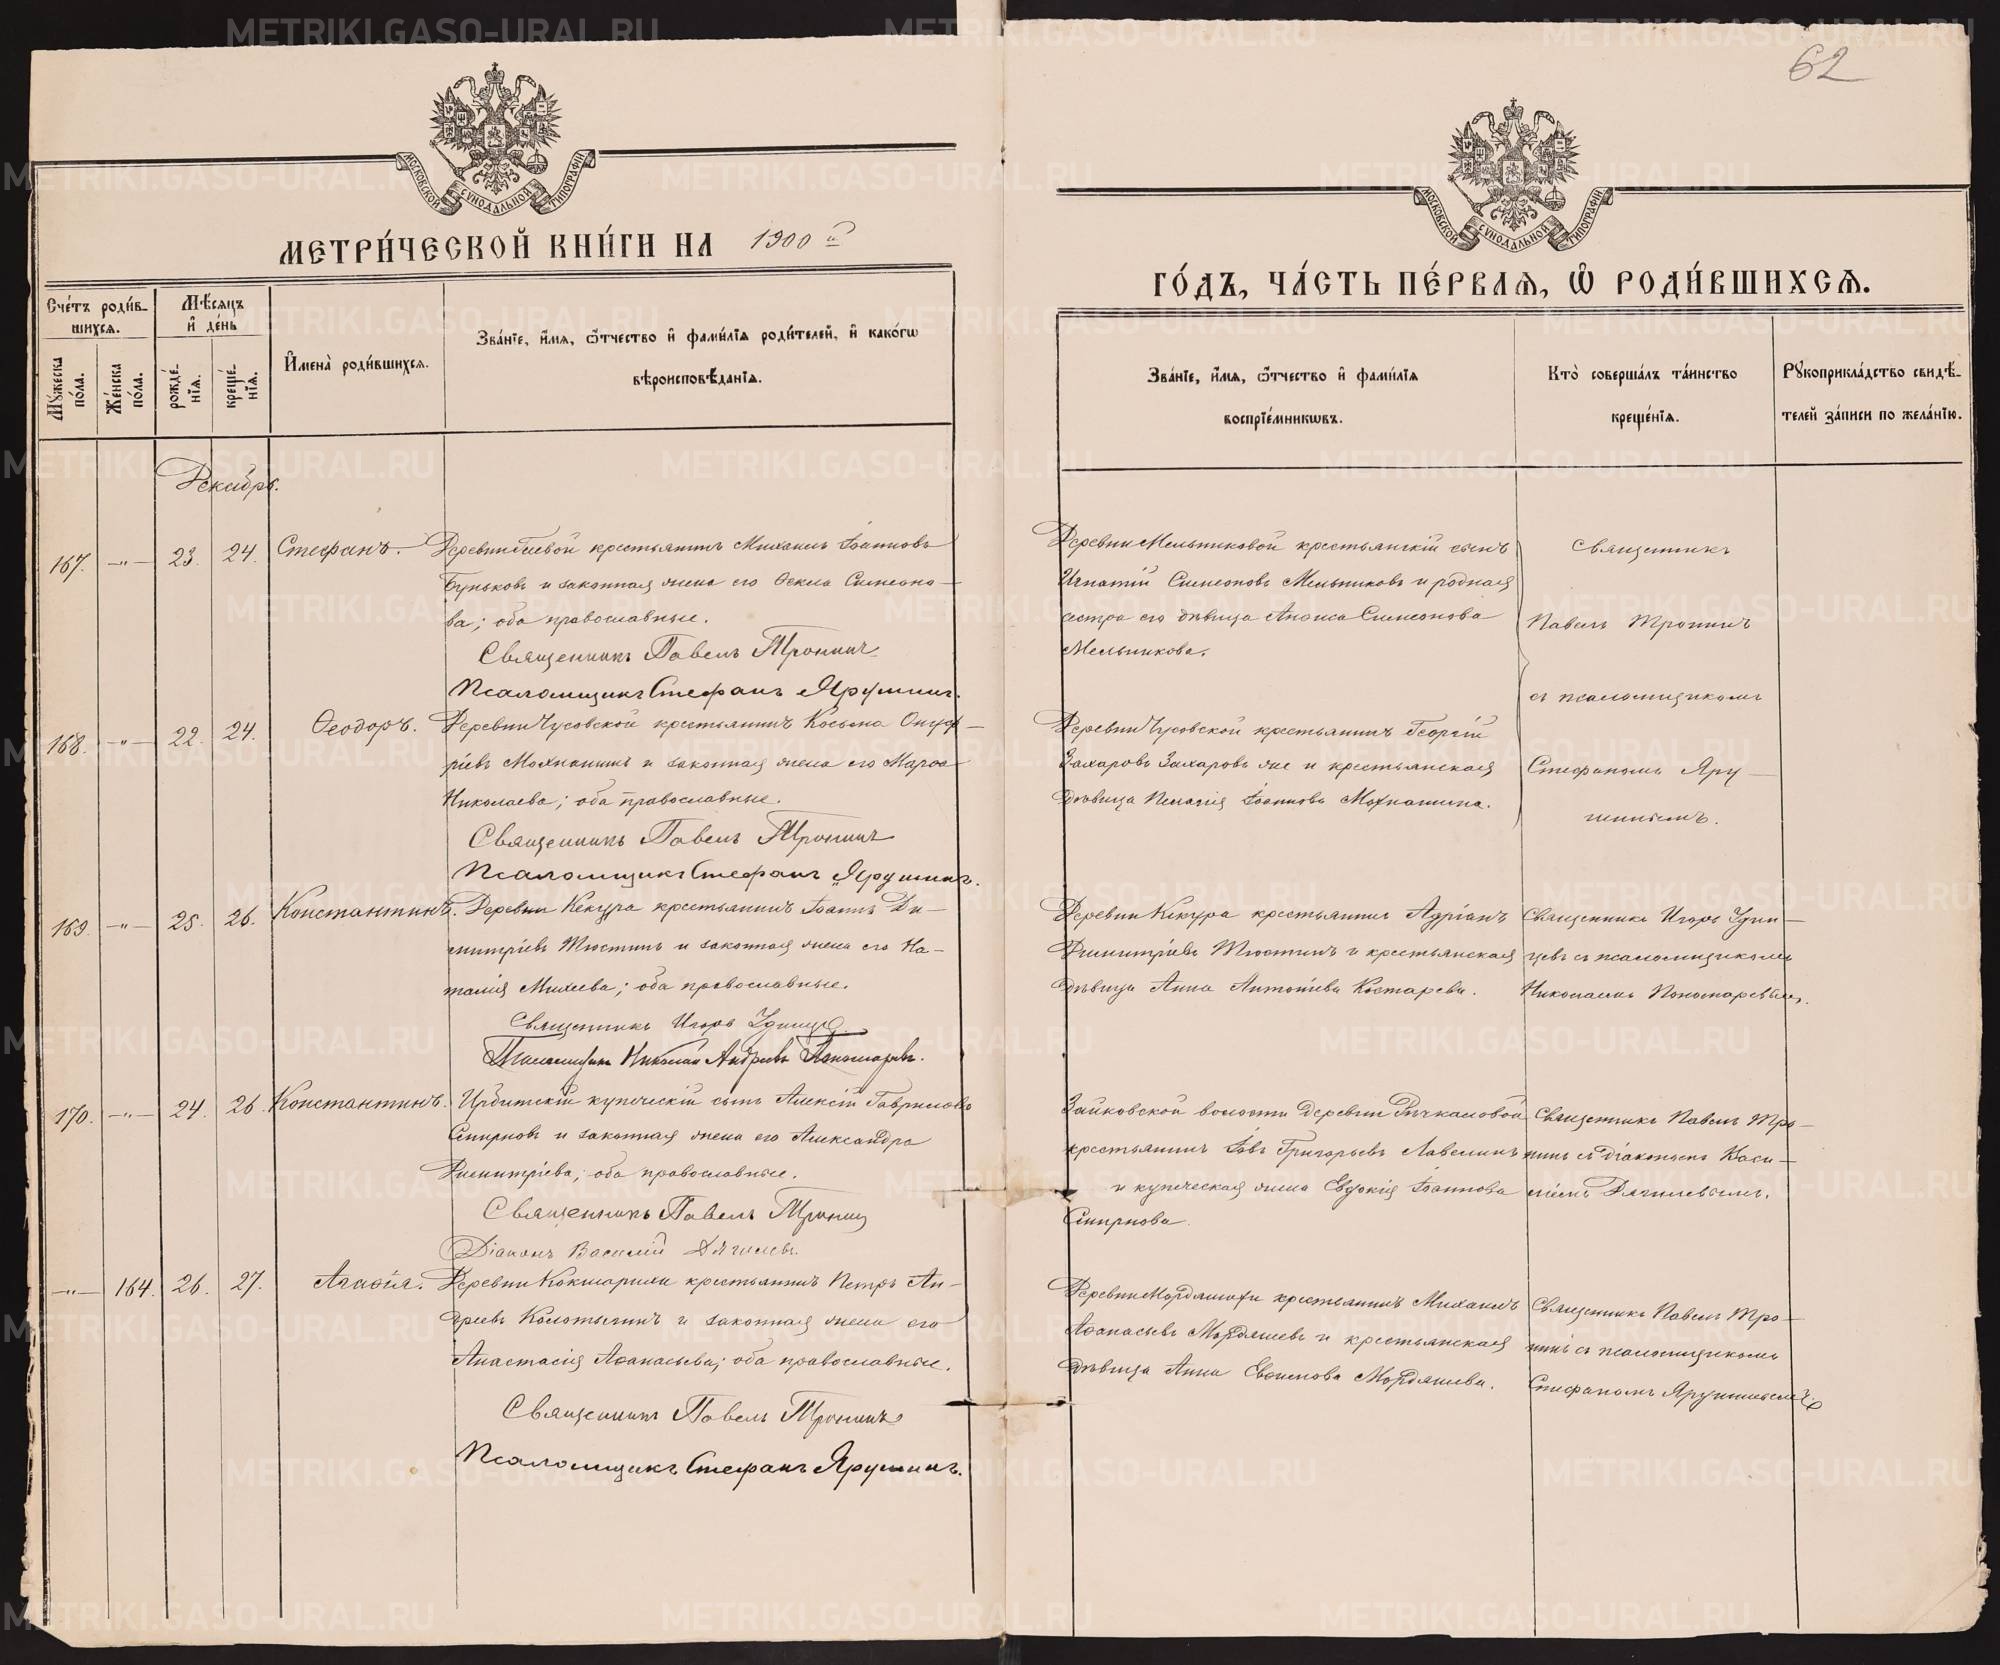 62
МОСКОВСКОЙ СУНОДАЛЬНОЙ ТИПОГРАФІИ
МОСКОВСКОЙ СУНОДАЛЬНОЙ ТИПОГРАФІИ
МЕТРИ́ЧЕСКОЙ КНИ́ГИ НА 1900 й
ГО́ДЪ, ЧА́СТЬ ПЕ́РВАѦ, Ѡ РОДИ́ВШИХСѦ.
Сче́тъ роди́в-
шихсѧ.
Мѣ́сяцъ
и҆ де́нь
Мꙋ́жеска
по́ла.
Же́нска
по́ла.
рожде́-
нїѧ.
креще́-
нїѧ.
И҆мена̀ роди́вшихсѧ.
Зва́нїе, и҆́мѧ, ѻ҆́тчество и҆ фами́лїѧ роди́телей, и҆ како́гѡ
вѣроисповѣ́данїѧ.
Зва́нїе, и҆́мѧ, ѻ҆́тчество и҆ фами́лїѧ
воспрїе́мникѡвъ.
Кто̀ соверша́лъ та́инство
креще́нїѧ.
Рꙋкоприкла́дство свидѣ́-
телей за́писи по жела́нїю.
Декабрь.
167. —„— 23. 24. Стефанъ. Деревни крестьянинъ Михаилъ Іоанновъ
Буньковъ и законная жена его Ѳекла Симеоно-
ва; оба православные.
Священникъ Павелъ Тронинъ
Псаломщикъ Стефанъ Ярушинъ.
Деревни Мельниковой крестьянскій сынъ
Игнатій Симеоновъ Мельниковъ и родная
сестра его дѣвица Анѳиса Симеонова
Мельникова.
Священникъ
Павелъ Тронинъ
съ псаломщикомъ
Стефаномъ Яру-
шинымъ.
168. —„— 22. 24. Ѳеодоръ. Деревни Чусовской крестьянинъ Косьма Онуф-
ріевъ Мохнашинъ и законная жена его Марѳа
Николаева; оба православные.
Священникъ Павелъ Тронинъ
Псаломщикъ Стефанъ Ярушинъ.
Деревни Чусовской крестьянинъ Георгій
Захаровъ Захаровъ же и крестьянская
дѣвица Пелагія Іоаннова Мохнашина.
169. —„— 25. 26. Константинъ. Деревни Кекура крестьянинъ Іоаннъ Ди-
митріевъ Тюстинъ и законная жена его На-
талія Михеева; оба православные.
Священникъ Игорь Удинцевъ.
Псаломщикъ Николай Андреевъ Пономаревъ.
Деревни Кекура крестьянинъ Адріанъ
Димитріевъ Тюстинъ и крестьянская
дѣвица Анна Антоніева Костарева.
Священникъ Игорь Удин-
цевъ съ псаломщикомъ
Николаемъ Пономаревымъ.
170. —„— 24. 26. Константинъ. Ирбитскій купеческій сынъ Алексій Гавриловъ
Смирновъ и законная жена его Александра
Димитріева; оба православные.
Священникъ Павелъ Тронинъ
Діаконъ Василій Дягилевъ.
Зайковской волости деревни Рѣчкаловой
крестьянинъ Іовъ Григорьевъ Лавелинъ
и купеческая жена Евдокія Іоаннова
Смирнова.
Священникъ Павелъ Тро-
нинъ съ діакономъ Васи-
ліемъ Дягилевымъ.
—„— 164. 26. 27. Агаѳія. Деревни Кокшарихи крестьянинъ Петръ Ан-
дреевъ Колотыгинъ и законная жена его
Анастасія Аѳанасьева; оба православные.
Священникъ Павелъ Тронинъ
Псаломщикъ Стефанъ Ярушинъ.
Деревни Мордяшихи крестьянинъ Михаилъ
Аѳанасьевъ Мордяшевъ и крестьянская
дѣвица Анна Евѳимова Мордяшева.
Священникъ Павелъ Тро-
нинъ съ псаломщикомъ
Стефаномъ Ярушинымъ.